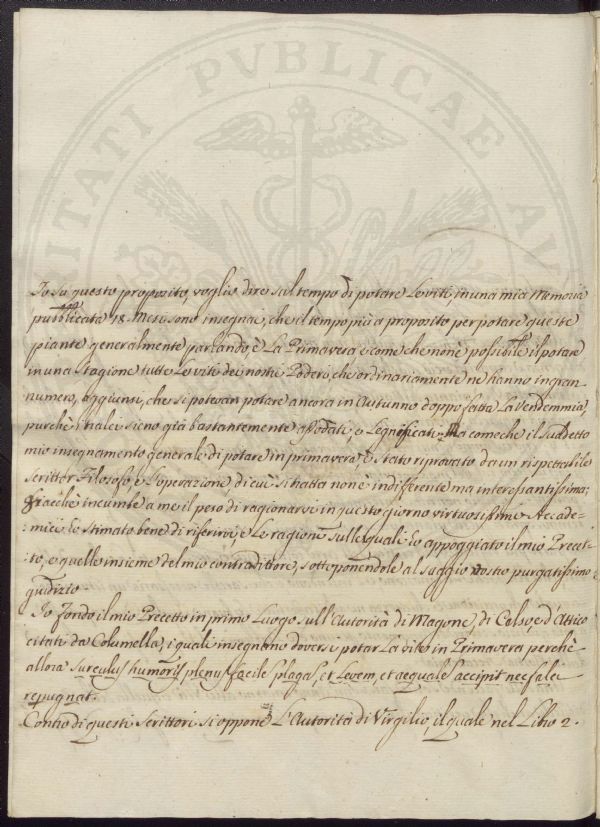 PROSPERITATI PVBLICAE AV
Io su questo proposito, voglio dire sul tempo di potare le viti in una mia Memoria
pubblicata 18. Mesi sono insegnai, che il tempo più a proposito per potare queste
piante generalmente parlando, è La Primavera e come che non è possibile il potare
in una stagione tutte Le viti dei nostri Poderi, che ordinariamente ne hanno in gran
numero, aggiunsi, che si potevan potare ancora in Autunno doppo fatta La Vendemmia,
purchè i tralci sieno già bastantemente assodati, e Legnificati. Ma comeche il suddetto
mio insegnamento generale di potare in primavera, è stato riprovato da un rispettabile
scrittor Filosofo, e L'operazione di cui si tratta non è indifferente ma interessantissima;
giacchè incumbe a me il peso di ragionarvi in questo giorno virtuosissimi Accade-
:mici ho stimato bene di riferirvi, e Le ragioni sulle quali ho appoggiato il mio Precet-
:to, e quelle insieme del mio contradittore, sottoponendole al saggio vostro purgatissimo
giudizio.
Io Fondo il mio Precetto in primo Luogo sull'Autorità di Magone, di Celso, e d'Attico
citati da Columella, i quali insegnano doversi potar La vite in Primavera perchè
allora surculus humoris plenus facile plagas, et Levem, et aequalem accipit nec falci
repugnat.
Contro di questi Scrittori si oppone L'Autorità di Virgilio, il quale nel Libro 2.